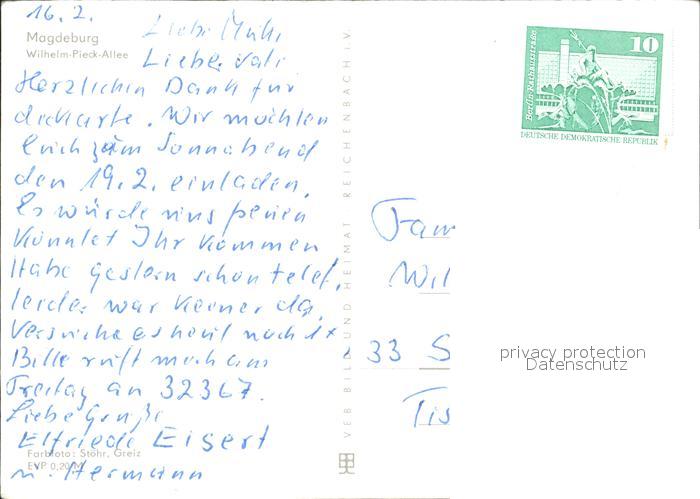 16.2.
Magdeburg
Wilhelm-Pieck-Allee
Liebe Muhi
Liebe Vati
Herzlichen Dank für
die Karte. Wir möchten
Euch zum Sonnabend
den 19.2. einladen.
Es würde uns freuen
könntet Ihr kommen
Habe gestern schon telef.
leider war keener da.
Versuche es heut noch 1x
Bitte ruft mich am
Freitag an 32367.
Liebe Grüße
Elfriede Eisert
u. Hermann
Farbfoto: Stöhr, Greiz
EVP 0,20 M
VEB BILD UND HEIMAT REICHENBACH i.V.
Berlin-Rathausstraße
10
DEUTSCHE DEMOKRATISCHE REPUBLIK
Fam
Wil
33 S
Tis
privacy protection
Datenschutz